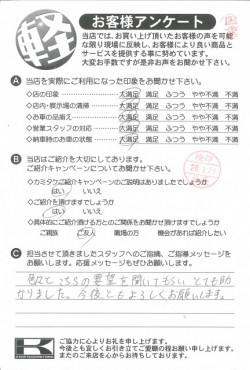 軽
お客様アンケート
当店では、お買い上げ頂いたお客様の声を可能
な限り現場に反映し、お客様により良い商品と
サービスを提供する事に努めています。
大変お手数ですが是非お声をお聞かせ下さい。
A 当店を実際にご利用になった印象をお聞かせ下さい。
◇店の印象 大満足 満足 ふつう やや不満 不満
◇店内・展示場の清掃 大満足 満足 ふつう やや不満 不満
◇お車の品揃え 大満足 満足 ふつう やや不満 不満
◇営業スタッフの対応 大満足 満足 ふつう やや不満 不満
◇納車時のお車の状態 大満足 満足 ふつう やや不満 不満
B 当店はご紹介を大切にしております。
ご紹介キャンペーンについてお聞かせ下さい。
◇カミタケご紹介キャンペーンのご説明はありましたでしょうか
はい いいえ
◇ご紹介を頂けますでしょうか
はい いいえ
◇具体的にご紹介頂ける方とのご関係をお聞かせ頂けますでしょうか
ご親族 ご友人 職場の方 機会があれば紹介したい
C 担当させて頂きましたスタッフへのご指摘、ご指導メッセージを
お願いします。応援メッセージもぜひお願いします。
こちらの要望を聞いてもらい とても助
かりました。今後ともよろしくお願いします。
K
ご協力に心よりお礼を申し上げます。
今後とも宜しくお引き立てご愛顧の程お願い申し上げます。
またのご来店を心からお待ちしております。